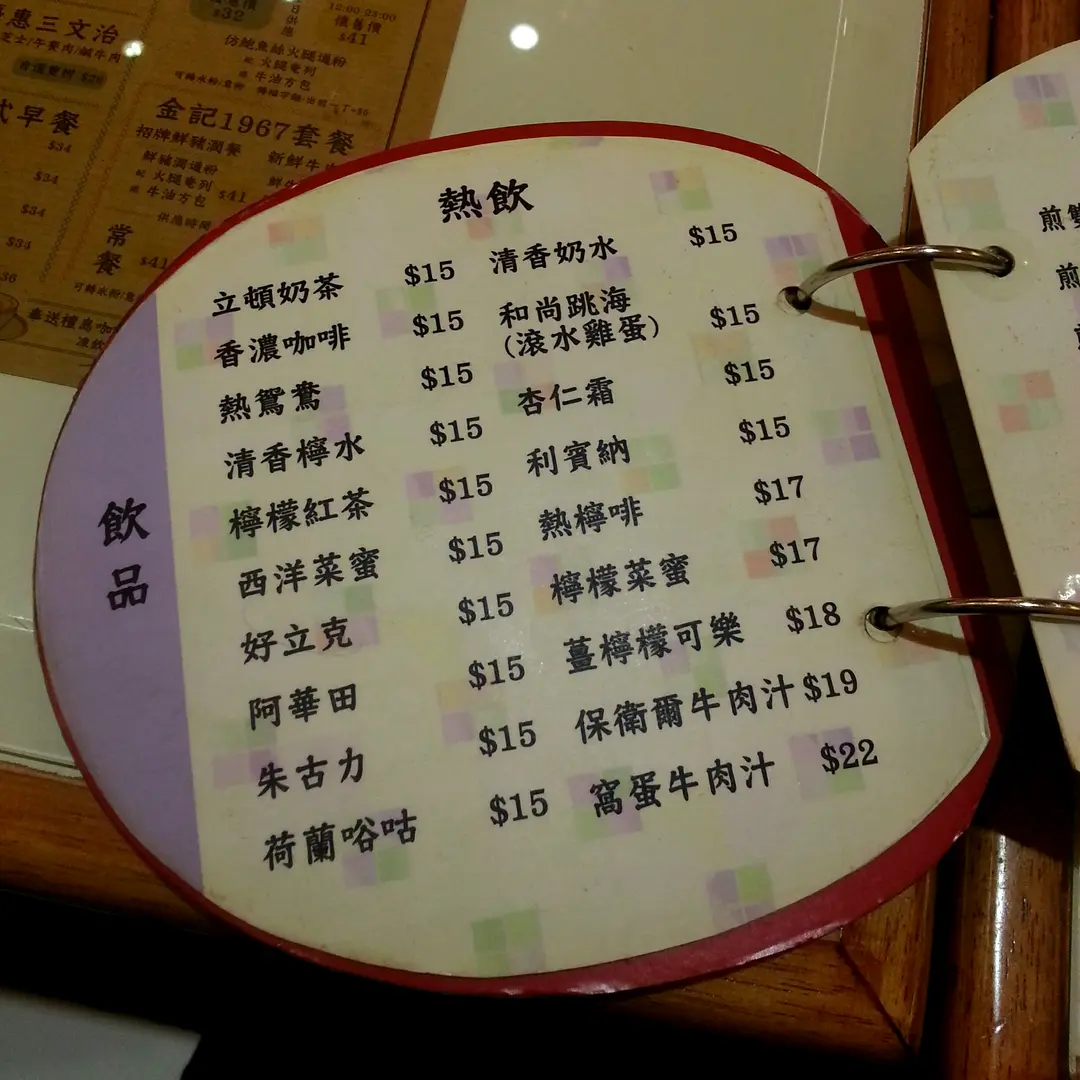 惠三文治
芝士/午餐肉/鹹牛肉
$32
12:00-23:00
懷舊價
$41
仿鮑魚絲火腿通粉
火腿奄列
牛油方包
式早餐
$34
$34
$34
$34
金記1967套餐
招牌鮮豬潤餐
新鮮牛
鮮豬潤通粉
火腿奄列
牛油方包
$41
供應時間
常餐
$41
飲品
熱飲
立頓奶茶 $15
香濃咖啡 $15
熱鴛鴦 $15
清香檸水 $15
檸檬紅茶 $15
西洋菜蜜 $15
好立克 $15
阿華田 $15
朱古力 $15
荷蘭唂咕 $15
清香奶水 $15
和尚跳海
(滾水雞蛋) $15
杏仁霜 $15
利賓納 $15
熱檸啡 $17
檸檬菜蜜 $17
薑檸檬可樂 $18
保衛爾牛肉汁 $19
窩蛋牛肉汁 $22
煎雙
煎